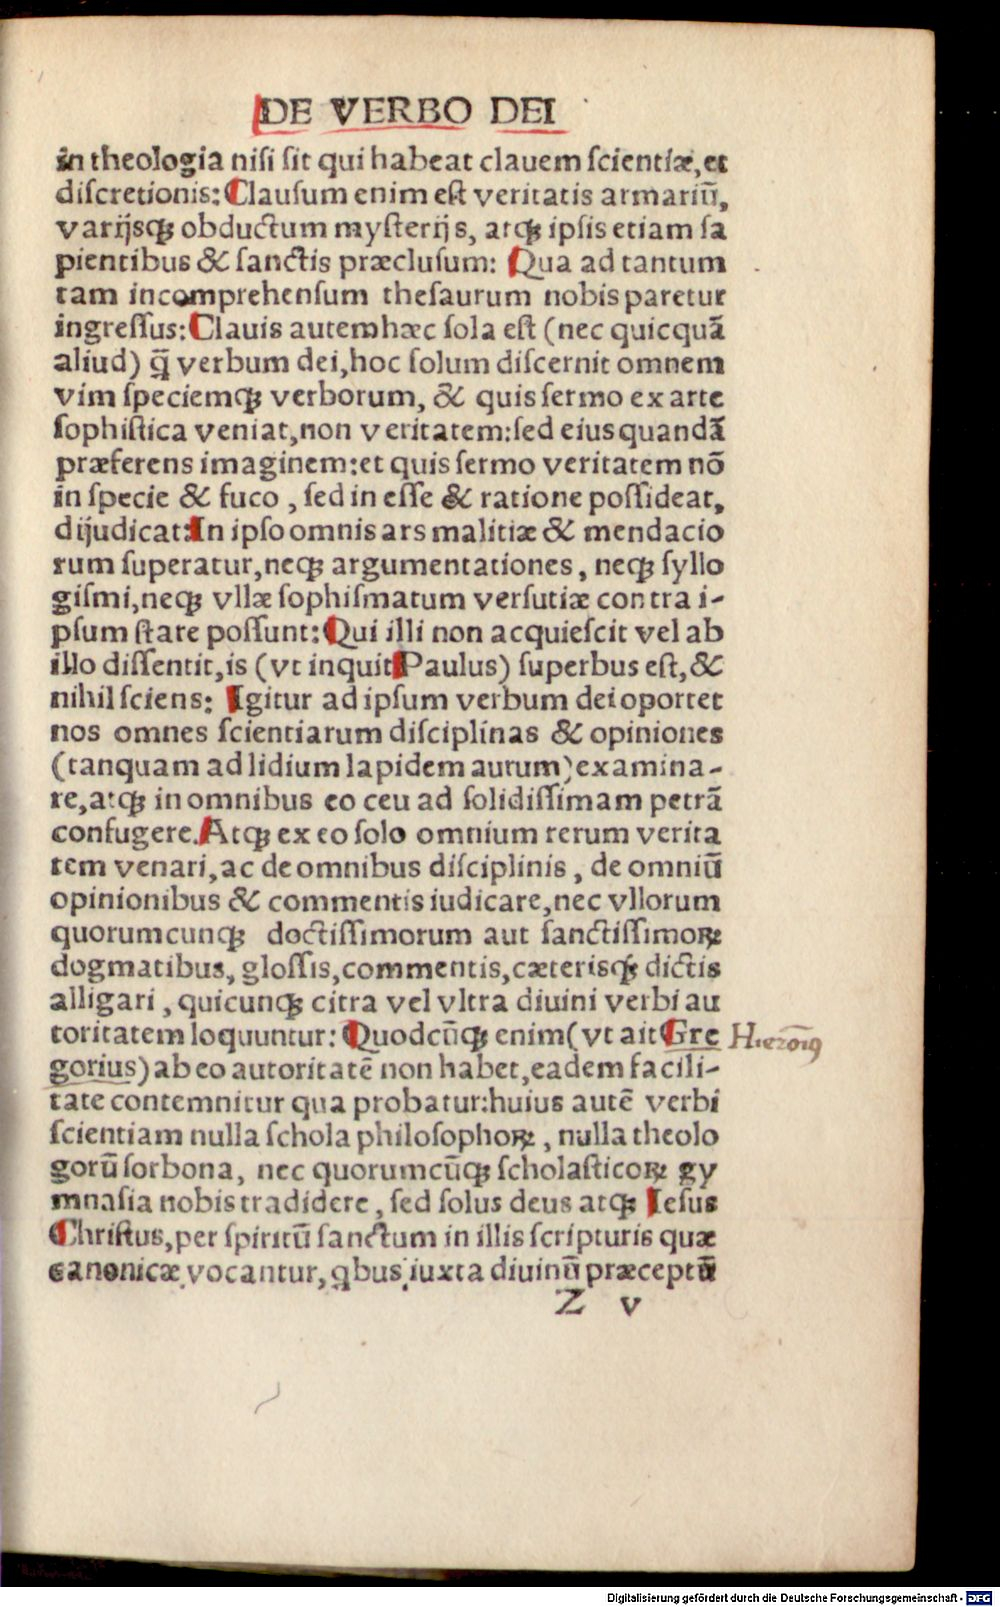 DE VERBO DEI
in theologia nisi sit qui habeat clauem scientiæ, et
discretionis: Clausum enim est veritatis armariū,
varijsqꝫ obductum mysterijs, atqꝫ ipsis etiam sa
pientibus & sanctis præclusum: Qua ad tantum
tam incomprehensum thesaurum nobis paretur
ingressus: Clauis autem hæc sola est (nec quicquā
aliud) q̄ verbum dei, hoc solum discernit omnem
vim speciemqꝫ verborum, & quis sermo ex arte
sophistica veniat, non veritatem: sed eius quandā
præferens imaginem: et quis sermo veritatem nō
in specie & fuco, sed in esse & ratione possideat,
dijudicat: In ipso omnis ars malitiæ & mendacio
rum superatur, neqꝫ argumentationes, neqꝫ syllo
gismi, neqꝫ vllæ sophismatum versutiæ contra i-
psum stare possunt: Qui illi non acquiescit vel ab
illo dissentit, is (vt inquit Paulus) superbus est, &
nihil sciens: Igitur ad ipsum verbum dei oportet
nos omnes scientiarum disciplinas & opiniones
(tanquam ad lidium lapidem aurum) examina-
re, atqꝫ in omnibus eo ceu ad solidissimam petrā
confugere. Atqꝫ ex eo solo omnium rerum verita
tem venari, ac de omnibus disciplinis, de omniū
opinionibus & commentis iudicare, nec vllorum
quorumcunqꝫ doctissimorum aut sanctissimoꝝ
dogmatibus, glossis, commentis, cæterisqꝫ dictis
alligari, quicunqꝫ citra vel vltra diuini verbi au
toritatem loquuntur: Quodcūqꝫ enim (vt ait Gre Hieronꝰ
gorius) ab eo autoritatē non habet, eadem facili-
tate contemnitur qua probatur: huius autē verbi
scientiam nulla schola philosophoꝝ, nulla theolo
gorū sorbona, nec quorumcūqꝫ scholasticoꝝ gy
mnasia nobis tradidere, sed solus deus atqꝫ Iesus
Christus, per spiritū sanctum in illis scripturis quæ
canonicæ vocantur, qbus iuxta diuinū præceptū
Z v
Digitalisierung gefördert durch die Deutsche Forschungsgemeinschaft - DFG